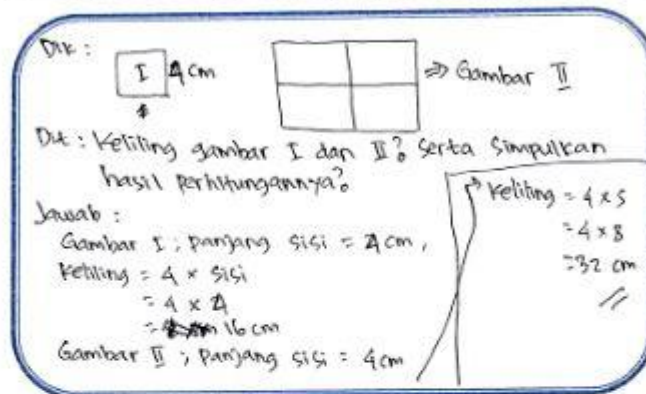 Dik :
I 4 cm
⇒ Gambar II
Dit : Keliling gambar I dan II? Serta Simpulkan
hasil perhitungannya?
Jawab :
Gambar I ; panjang sisi = 4 cm,
Keliling = 4 × sisi
= 4 × 4
= 16 cm
Gambar II ; panjang sisi = 4 cm
→ Keliling = 4 × s
= 4 × 8
= 32 cm